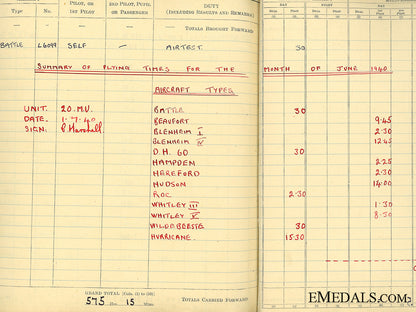 PILOT, OR 2ND PILOT, PUPIL DUTY DAY NIGHT DAY
Type No. 1ST PILOT OR PASSENGER (INCLUDING RESULTS AND REMARKS)
TOTALS BROUGHT FORWARD
BATTLE SELF — AIRTEST. 30
SUMMARY OF FLYING TIMES FOR THE MONTH OF JUNE 1940
AIRCRAFT TYPES
UNIT. 20. M.U. BATTLE 30
DATE. 1.7.40 BEAUFORT 9.45
SIGN: BLENHEIM I 2.30
BLENHEIM IV 12.45
D.H. 60 30
HAMPDEN 2.25
HEREFORD 2.30
HUDSON 14.00
ROC 2.30
WHITLEY III 1.30
WHITLEY V 8.30
30
HURRICANE 15.30
GRAND TOTAL
575 Hrs. 15 Mins. TOTALS CARRIED FORWARD
EMEDALS.COM